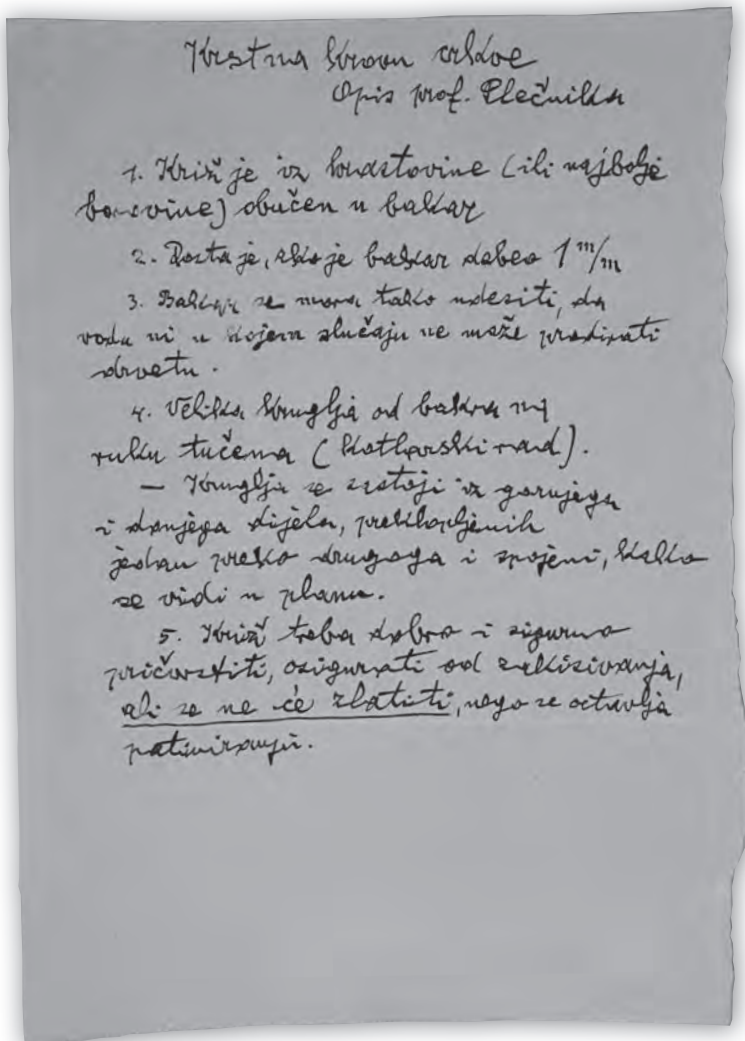 Krst na krovu crkve
Opis prof. Plečnika
1. Križ je iz hrastovine (ili najbolje
borovine) obučen u bakar
2. Dosta je, ako je bakar debeo 1 m/m
3. Bakar se mora tako udesiti, da
voda ni u kojem slučaju ne može prodirati
drvetu.
4. Velika kruglja od bakra na
ruku tučena (kotlarski rad).
— Kruglja se sastoji iz gornjega
i donjega dijela, preklopljenih
jedan preko drugoga i spojeni, kako
se vidi u planu.
5. Križ treba dobro i sigurno
pričvrstiti, osigurati od zakisivanja,
ali se ne će zlatiti, nego se ostavlja
patiniranju.